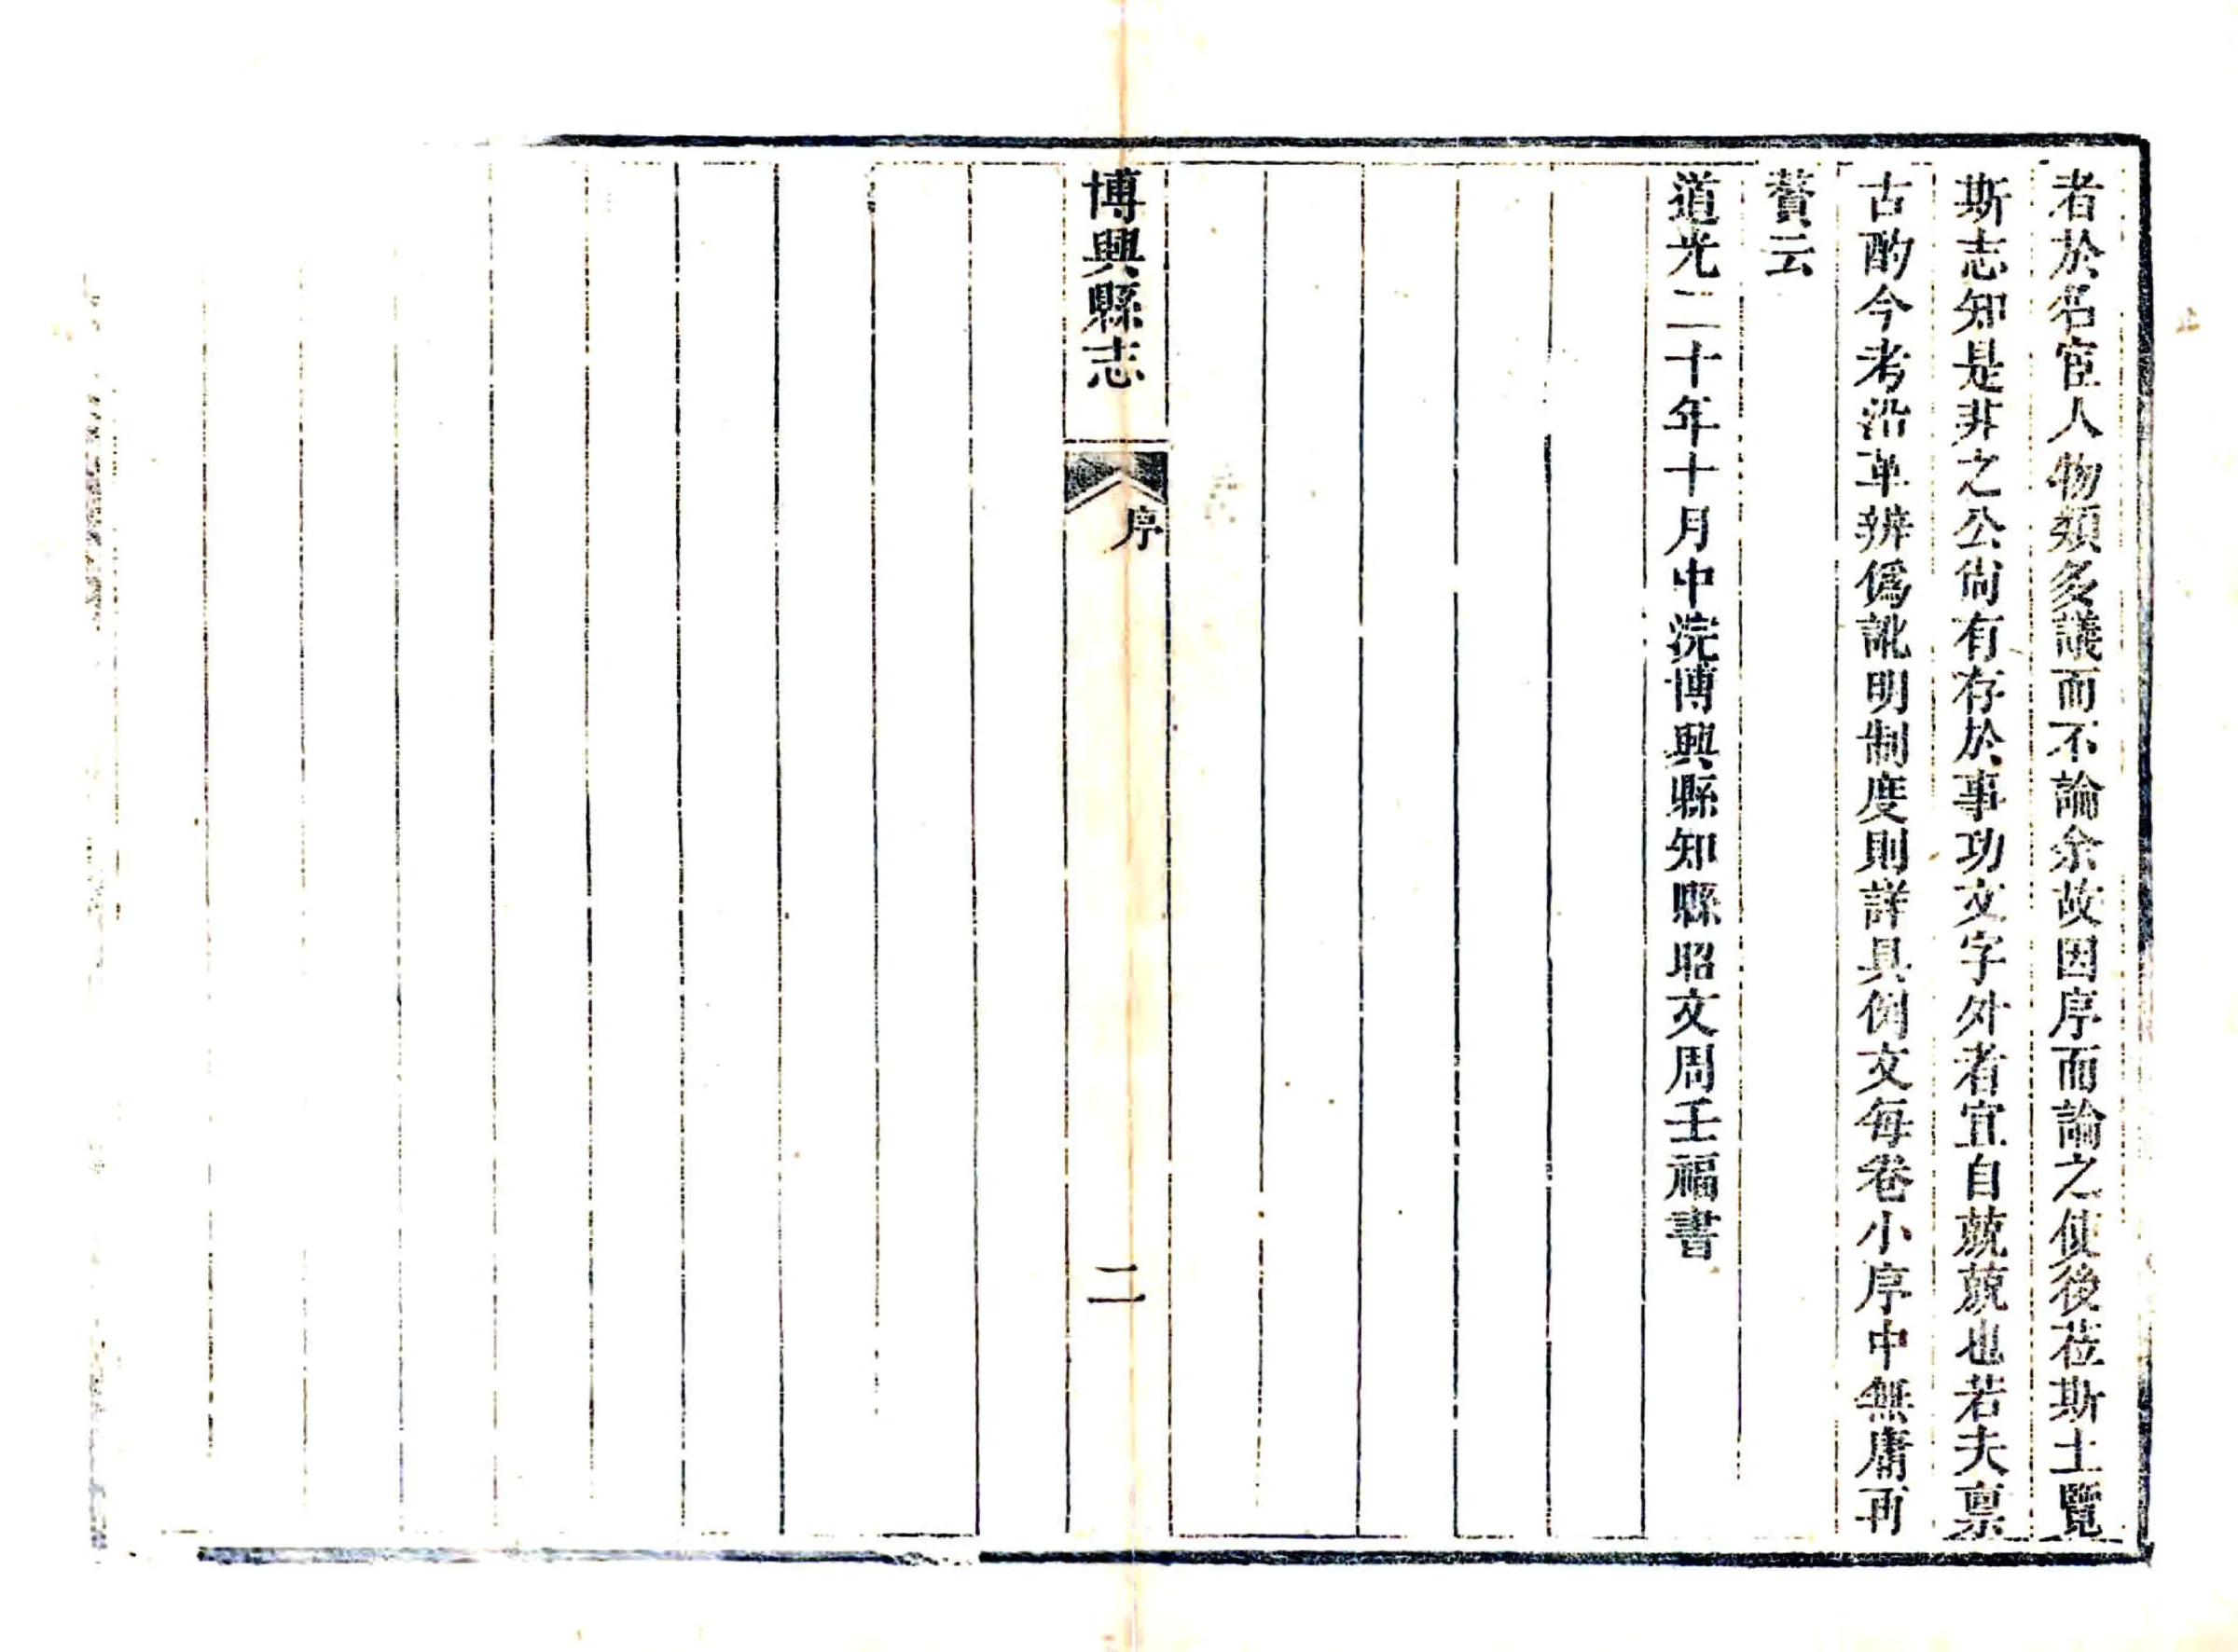 者於名宦人物類多議而不論余故因序而論之使後莅斯土覽
斯志知是非之公尙有存於事功文字外者宜自兢兢也若夫稟
古酌今考沿革辨僞訛明制度則詳具例文每卷小序中無庸再
贅云
道光二十年十月中浣博興縣知縣昭文周壬福書
博興縣志
序
二